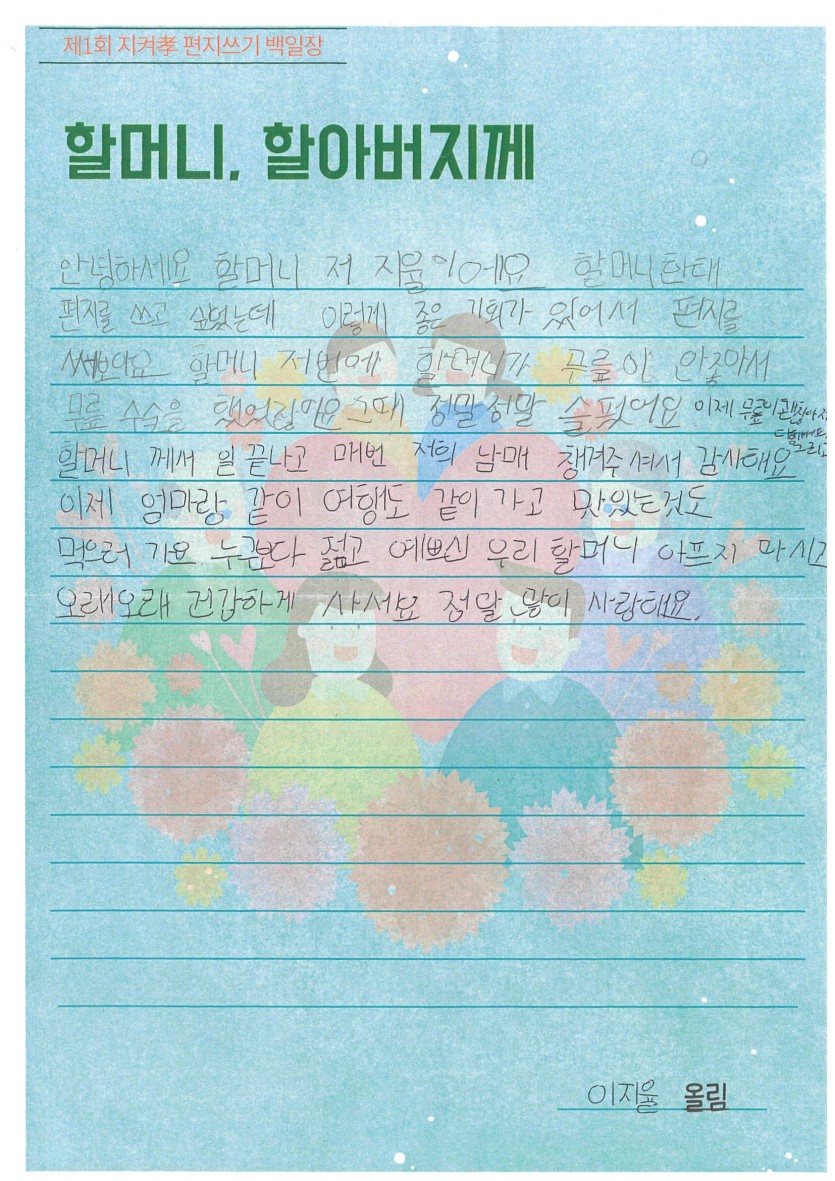 제1회 지켜孝 편지쓰기 백일장
할머니, 할아버지께
안녕하세요 할머니 저 지율이에요 할머니한태
편지를 쓰고 싶었는데 이렇게 좋은 기회가 있어서 편지를
써보아요 할머니 저번에 할머니가 무릎이 안좋아서
무릎 수숙을 했었잖아요 그때 정말정말 슬펐어요 이제 무릎이 괜찮아지
할머니 께서 일 끝나고 매번 저희 남매 챙겨주셔서 감사해요
이제 엄마랑 같이 여행도 같이 가고 맛있는것도
먹으러 가요 누구보다 젊고 예쁘신 우리 할머니 아프지 마시고
오래오래 건강하게 사세요 정말 많이 사랑해요.
이지율 올림